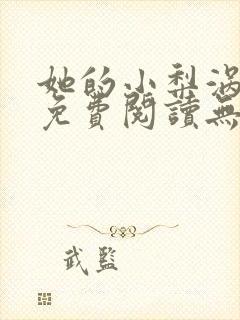 她的小梨涡
免費閱讀無
武監